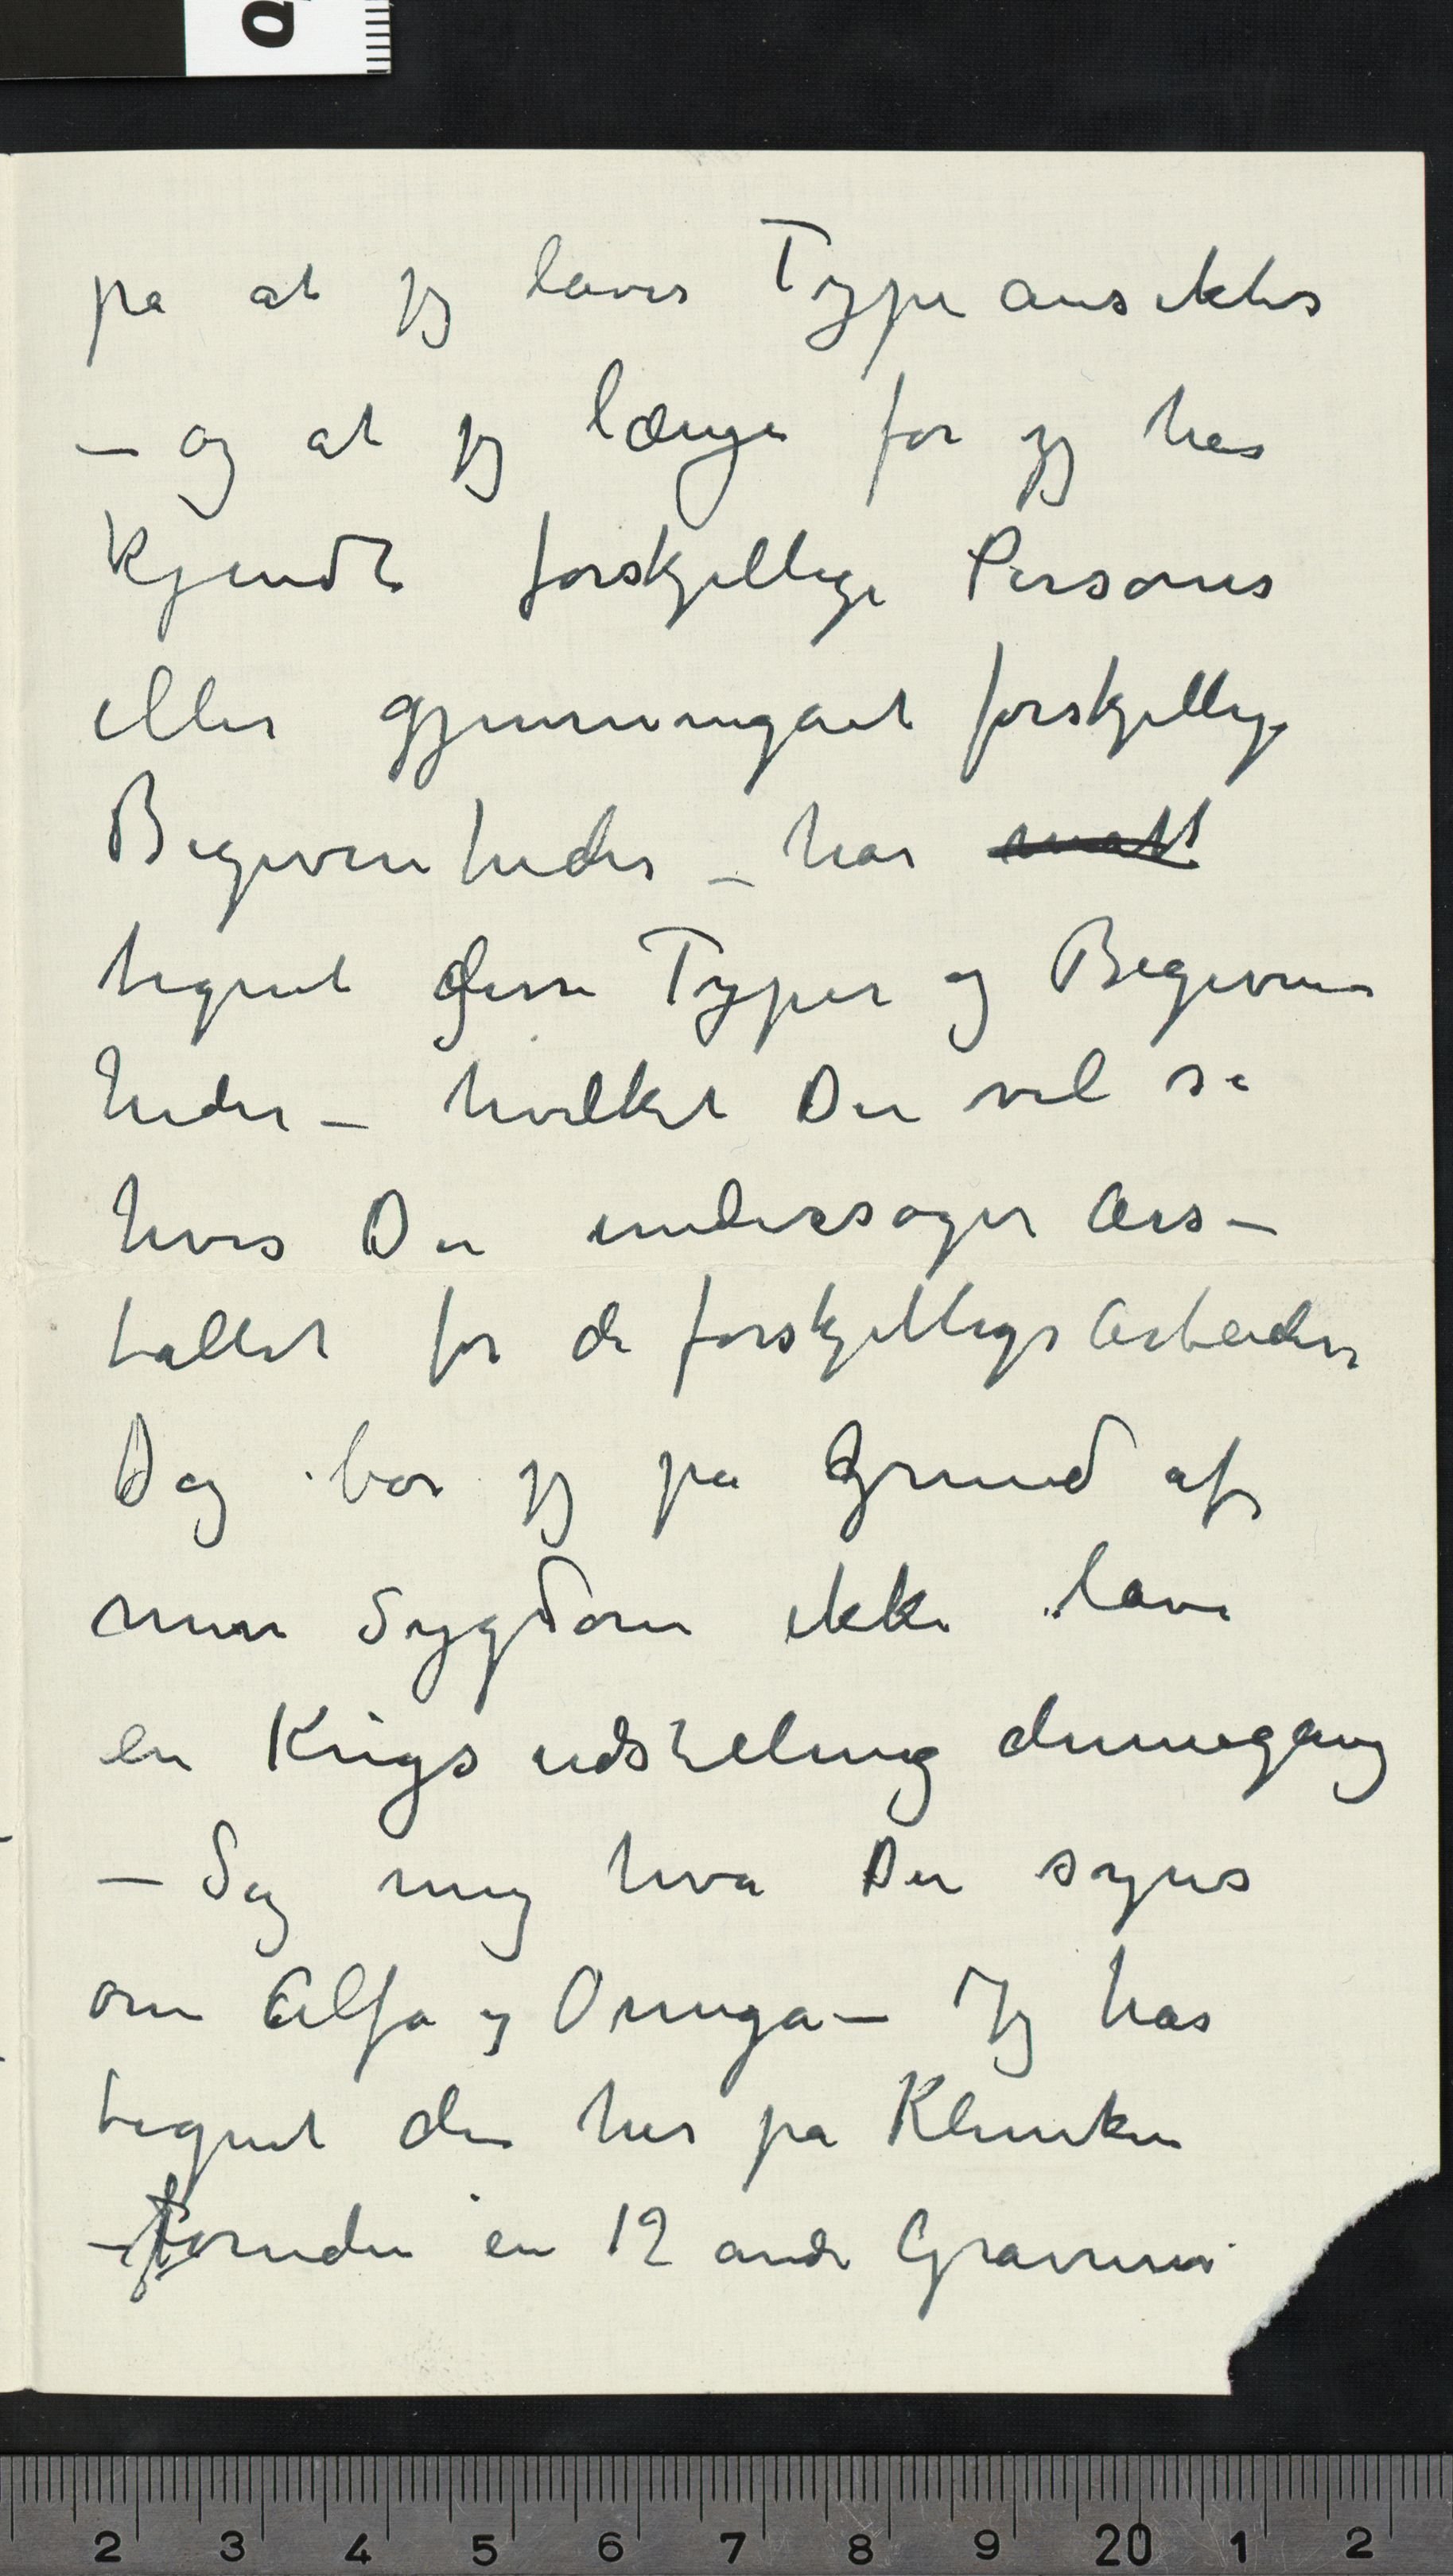 på at jeg laver Typeansikter
– og at jeg længe før jeg har
kjendt forskjellige Personer
eller gjennemgået forskjellige
Begivenheder – har malt
tegnet disse Typer og Begiven
heder – hvilket Du vil se
hvis Du undersøger Års–
tallet for de forskjellige Arbeider
Dog bør jeg på Grund af
min Sygdom ikke lave
en Krigsudstelling dennegang
– Sig mig hva Du synes
om Alfa og Omega – Jeg har
tegnet den her på Kliniken
– foruden en 12 andre Gravurer
2 3 4 5 6 7 8 9 20 1 2